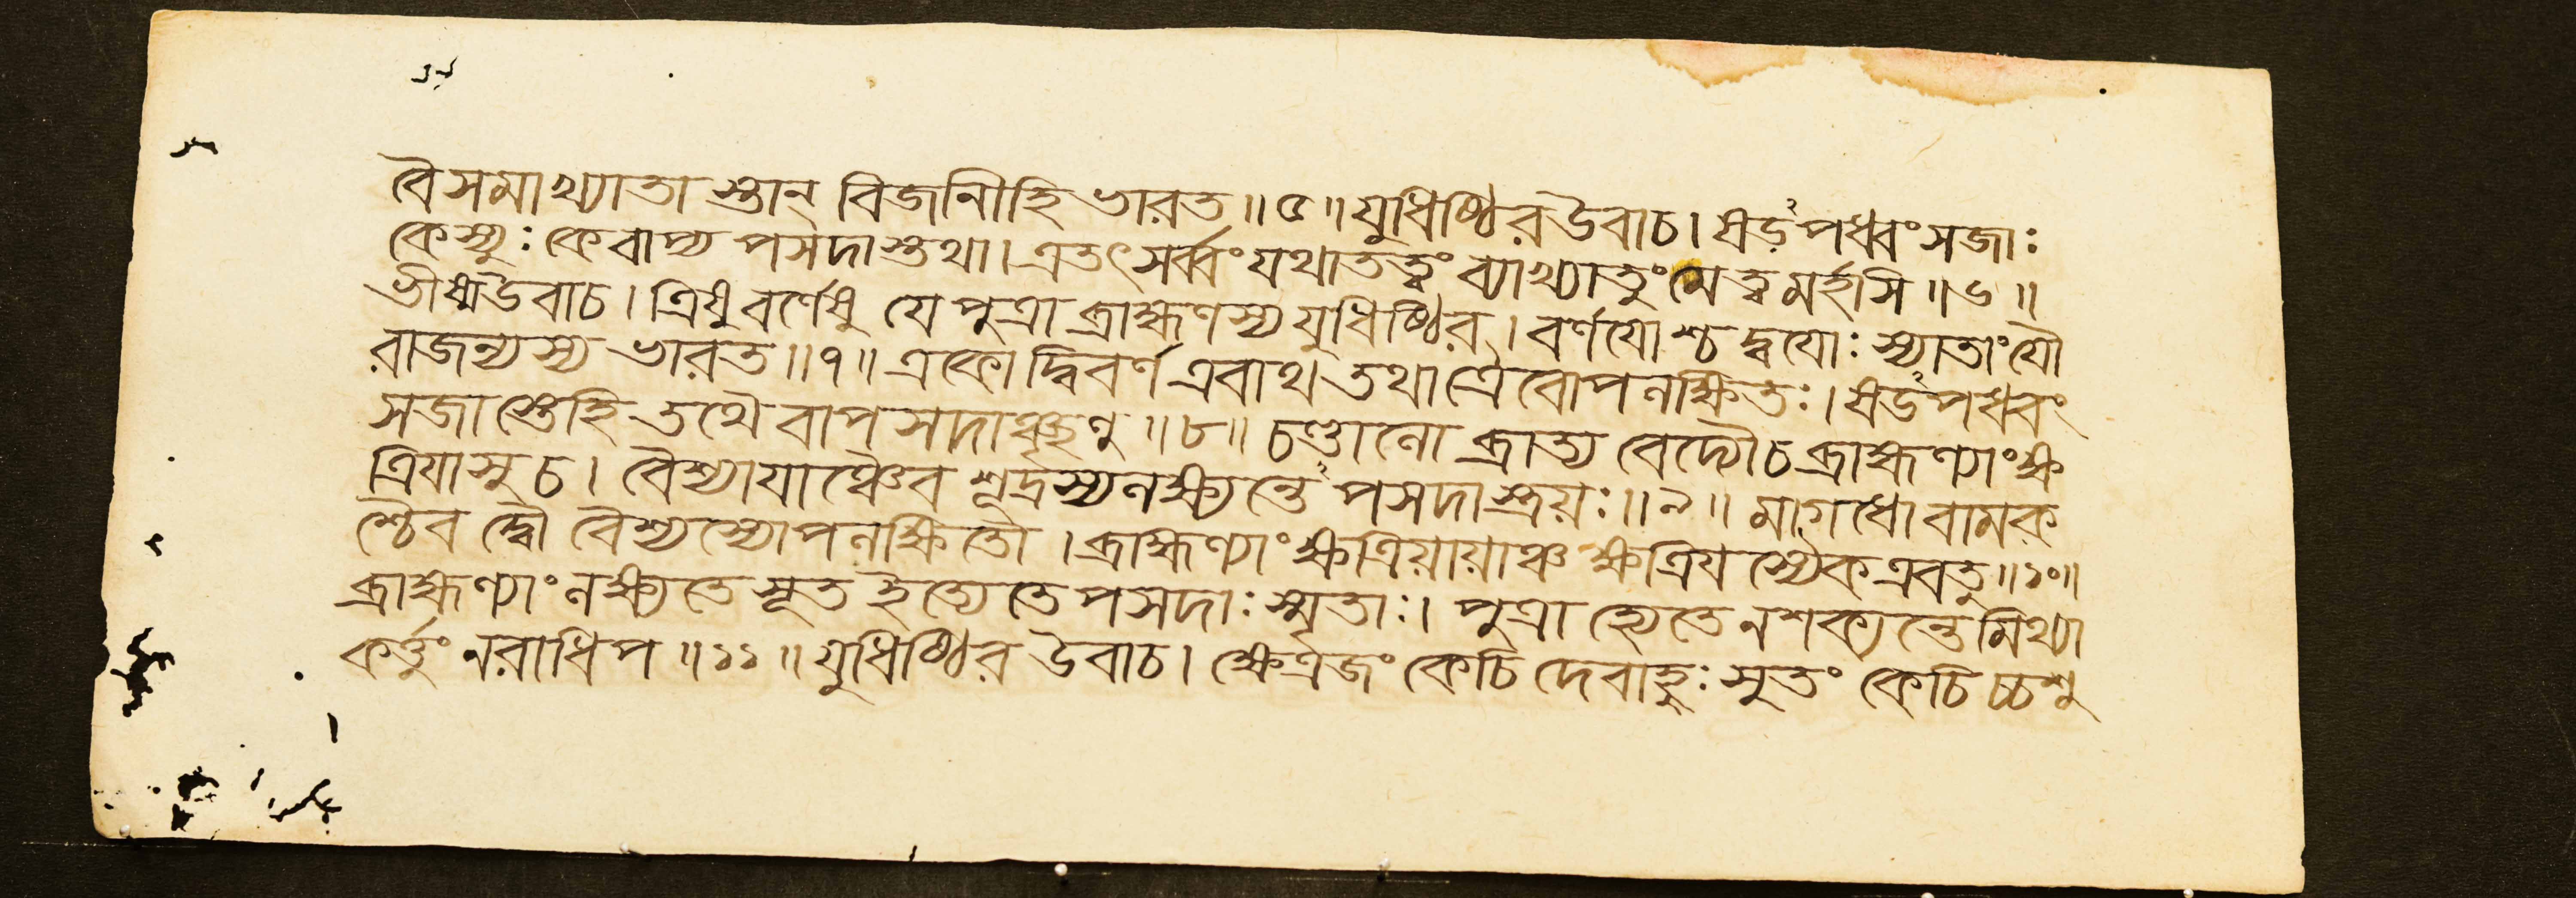 বৈসমাখ্যাতা স্তান্ বিজানীহি ভারত॥৫॥যুধিষ্ঠির উবাচ। ষড়পধ্বংসজাঃ
কেস্যুঃ কে বাপ্য পসদাস্তথা। এতৎ সর্ব্বং যথাতত্ত্বং ব্যাখ্যাতুং মেত্বমর্হসি॥৬॥
ভীষ্মউবাচ। ত্রিষুবর্ণেষু যে পুত্রা ব্রাহ্মণস্য যুধিষ্ঠির। বর্ণযোশ্চ দ্বযোঃ স্যাতাং যৌ
রাজন্যস্য ভারত॥৭॥ একো দ্বিবর্ণ এবাথ তথাত্রৈবোপলক্ষিতঃ। ষড়পধ্বং
সজাস্তেহি তথৈবাপসদাঞ্ছৃণু॥৮॥ চণ্ডালো ব্রাত্য বেদৌচ ব্রাহ্মণ্যাংক্ষ
ত্রিযাসু চ। বৈশ্যাযাঞ্চৈব শূদ্রস্য লক্ষ্যন্তে পসদাস্ত্রয়ঃ॥৯॥ মাগধো বামক
শ্চৈব দ্বৌ বৈশ্যস্যোপলক্ষিতৌ। ব্রাহ্মণ্যাং ক্ষত্রিয়ায়াঞ্চ ক্ষত্রিযস্যৈক এবতু॥১০॥
ব্রাহ্মণ্যাং লক্ষ্যতে সূত ইত্যেতেপসদাঃ স্মৃতাঃ। পুত্রা হ্যেতে ন শক্যন্তে মিথ্যা
কর্ত্তুং নরাধিপ॥১১॥যুধিষ্ঠির উবাচ। ক্ষেত্রজং কেচি দেবাহুঃ সুতং কেচি চ্চশু